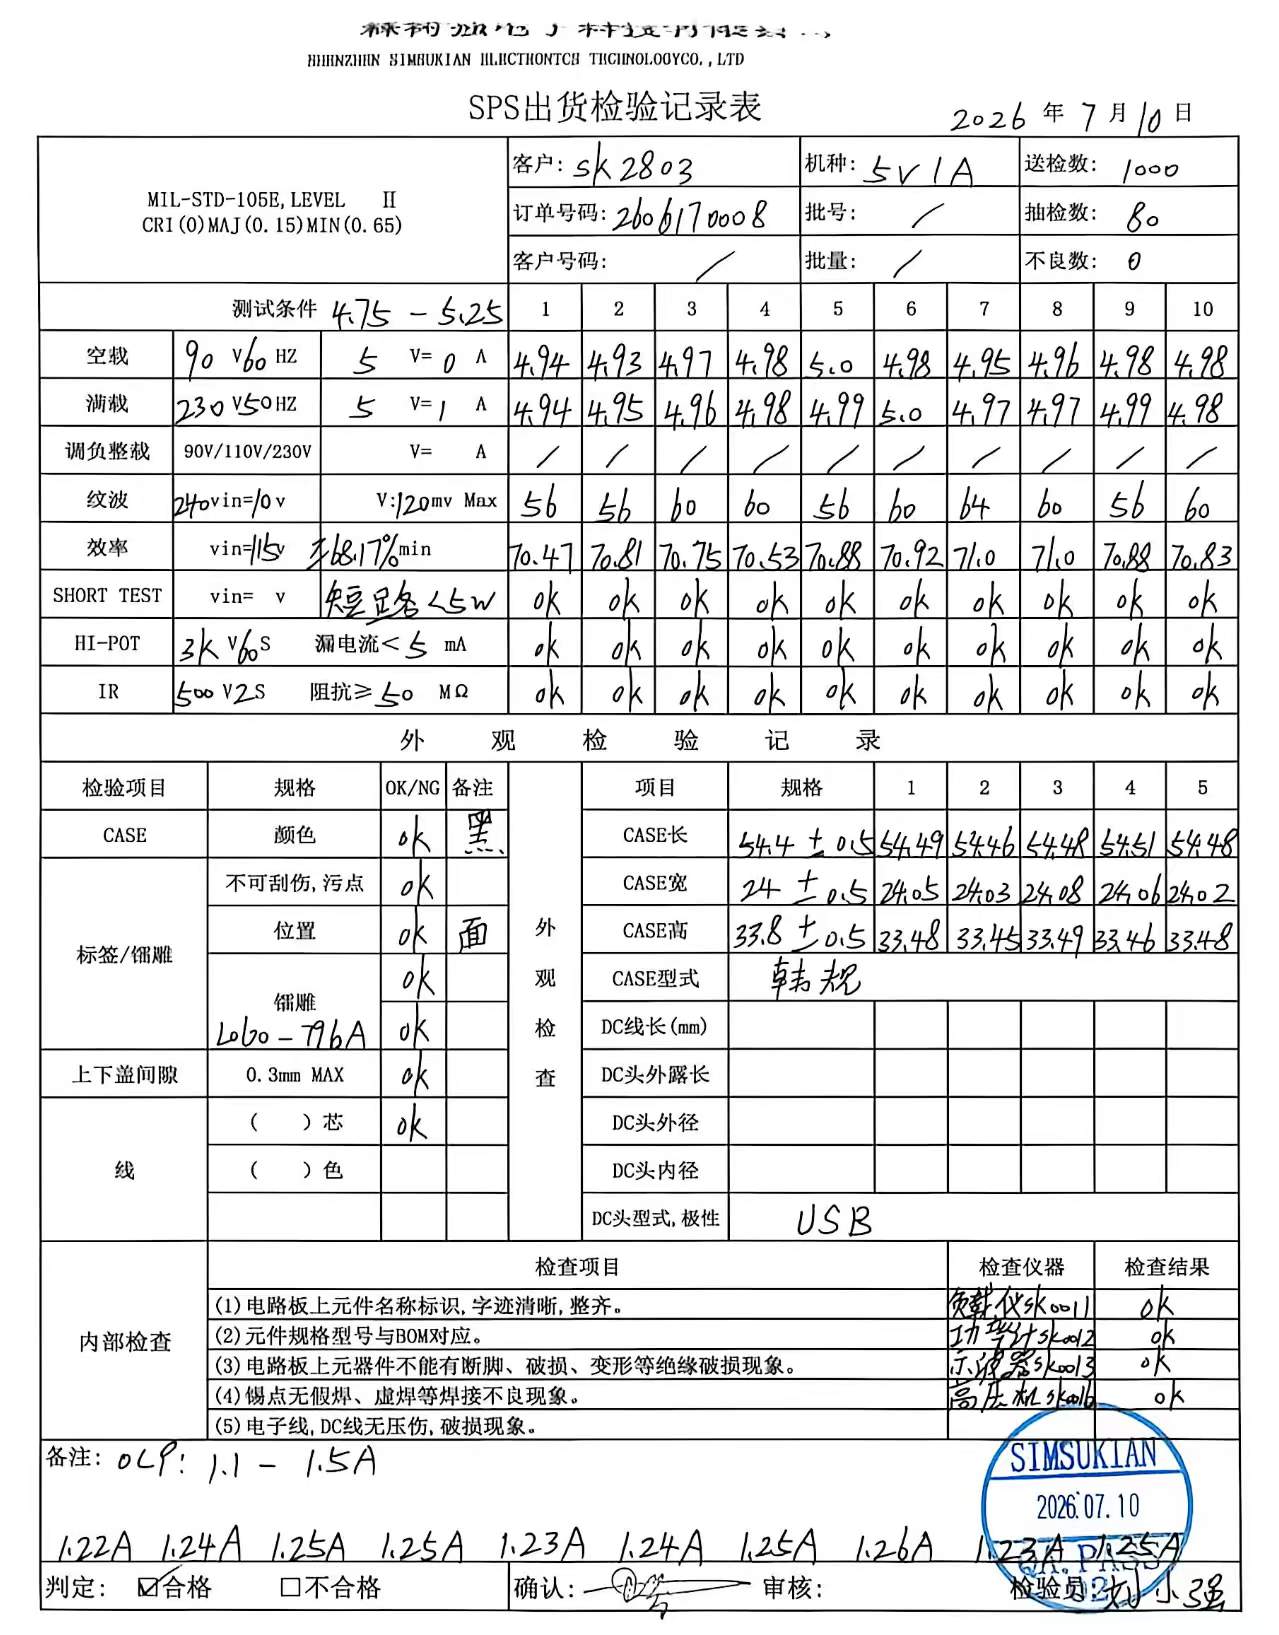 SPS出货检验记录表
2026 年 7 月 10 日
MIL-STD-105E, LEVEL II
CRI(0)MAJ(0.15)MIN(0.65)
客户: sk2803 机种: 5V1A 送检数: 1000
订单号码: 2606170008 批号: / 抽检数: 80
客户号码: / 批量: / 不良数: 0
测试条件 4.75 - 5.25 1 2 3 4 5 6 7 8 9 10
空载 90 V 60 HZ 5 V= 0 A 4.94 4.93 4.97 4.98 5.0 4.98 4.95 4.96 4.98 4.98
满载 230 V 50 HZ 5 V= 1 A 4.94 4.95 4.96 4.98 4.99 5.0 4.97 4.97 4.99 4.98
调负整载 90V/110V/230V V= A / / / / / / / / / /
纹波 240vin=10v V:120mv Max 56 56 60 60 56 60 64 60 56 60
效率 vin=115v ≥68.17%min 70.47 70.81 70.75 70.53 70.88 70.92 71.0 71.0 70.88 70.83
SHORT TEST vin= v 短路<5W ok ok ok ok ok ok ok ok ok ok
HI-POT 3K V 60 S 漏电流< 5 mA ok ok ok ok ok ok ok ok ok ok
IR 500 V 2 S 阻抗≥ 50 MΩ ok ok ok ok ok ok ok ok ok ok
外观检验记录
检验项目 规格 OK/NG 备注 项目 规格 1 2 3 4 5
CASE 颜色 ok 黑 CASE长 54.4 ± 0.5 54.49 54.46 54.48 54.51 54.48
不可刮伤,污点 ok CASE宽 24 ± 0.5 24.05 24.03 24.08 24.06 24.02
标签/镭雕 位置 ok 面 外观检查 CASE高 33.8 ± 0.5 33.48 33.45 33.49 33.46 33.48
ok CASE型式 韩规
镭雕 LOGO-796A ok DC线长(mm)
上下盖间隙 0.3mm MAX ok DC头外露长
线 ( )芯 ok DC头外径
( )色 DC头内径
DC头型式,极性 USB
内部检查 检查项目 检查仪器 检查结果
(1)电路板上元件名称标识,字迹清晰,整齐。 负载仪sk0011 ok
(2)元件规格型号与BOM对应。 功率计sk0012 ok
(3)电路板上元器件不能有断脚、破损、变形等绝缘破损现象。 示波器sk0013 ok
(4)锡点无假焊、虚焊等焊接不良现象。 高压机sk0016 ok
(5)电子线,DC线无压伤,破损现象。
备注: OLP: 1.1 - 1.5A
SIMSUKIAN
2026.07.10
1.22A 1.24A 1.25A 1.25A 1.23A 1.24A 1.25A 1.26A 1.23A 1.25A
QA.PASS
02
判定: ☑合格 □不合格 确认: 审核: 检验员: 刘小强